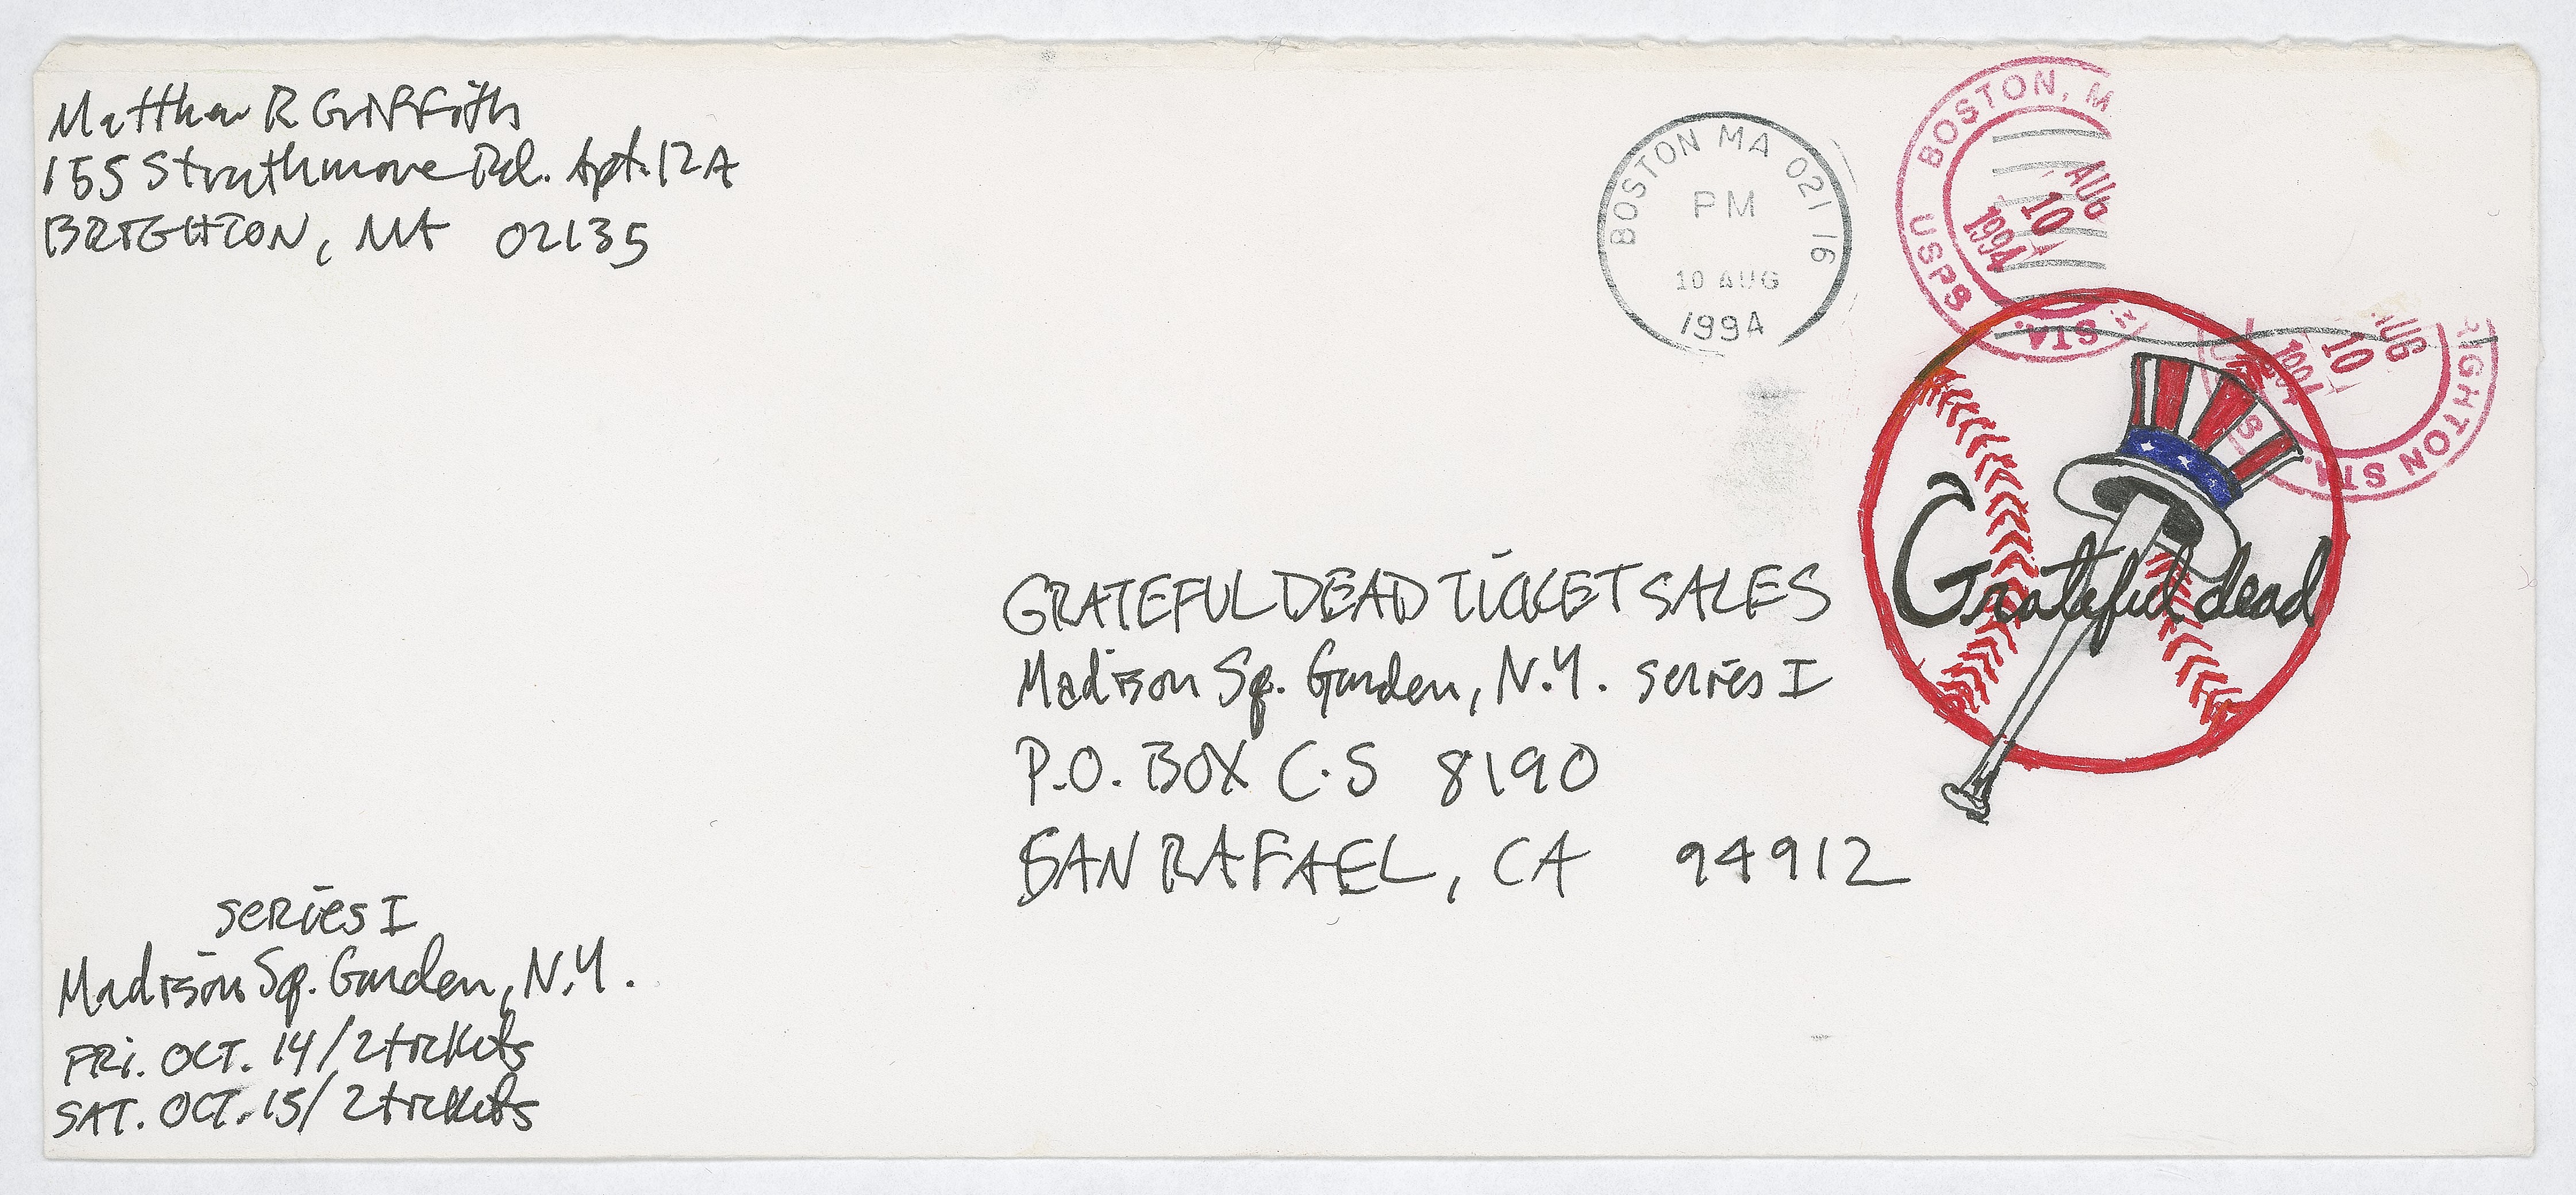 Matthew R Griffith
155 Strathmore Rd. Apt. 12A
BRIGHTON, MA 02135
BOSTON MA 02116
PM
10 AUG
1994
BOSTON, M
AUG
10
1994
USPS
STA.
AUG
10
1994
RIGHTON STA.
Grateful dead
GRATEFUL DEAD TICKET SALES
Madison Sq. Garden, N.Y. series I
P.O. BOX C.S 8190
SAN RAFAEL, CA 94912
series I
Madison Sq. Garden, N.Y.
FRI. OCT. 14/2 tickets
SAT. OCT. 15/2 tickets